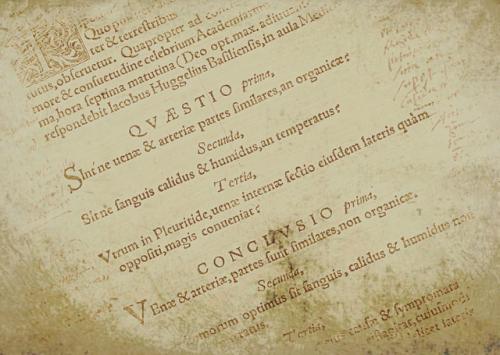 Quo
ter & terrestribus
obseruetur. Quapropter ad
more & consuetudine celebrium Academiarum
ma, hora septima matutina (Deo opt. max. adiuuante
respondebit Iacobus Huggelius Basiliensis, in aula Medi
QVÆSTIO prima,
SInt ne uenæ & arteriæ partes similares, an organicæ?
Secunda,
Sit ne sanguis calidus & humidus, an temperatus?
Tertia,
Vtrum in Pleuritide, uenæ internæ sectio eiusdem lateris quàm
oppositi, magis conueniat?
CONCLVSIO prima,
VEnæ & arteriæ, partes sunt similares, non organicæ.
Secunda,
optimus sit sanguis, calidus & humidus non
Tertia,
& symptomata
lateris